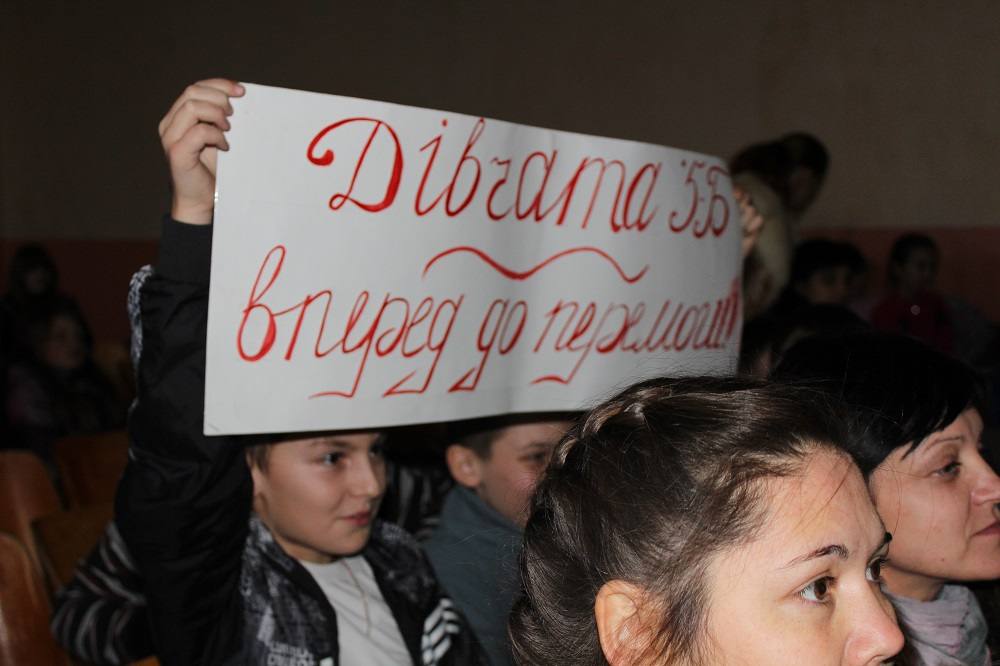 Дівчата 5-Б
вперед до перемоги!!!